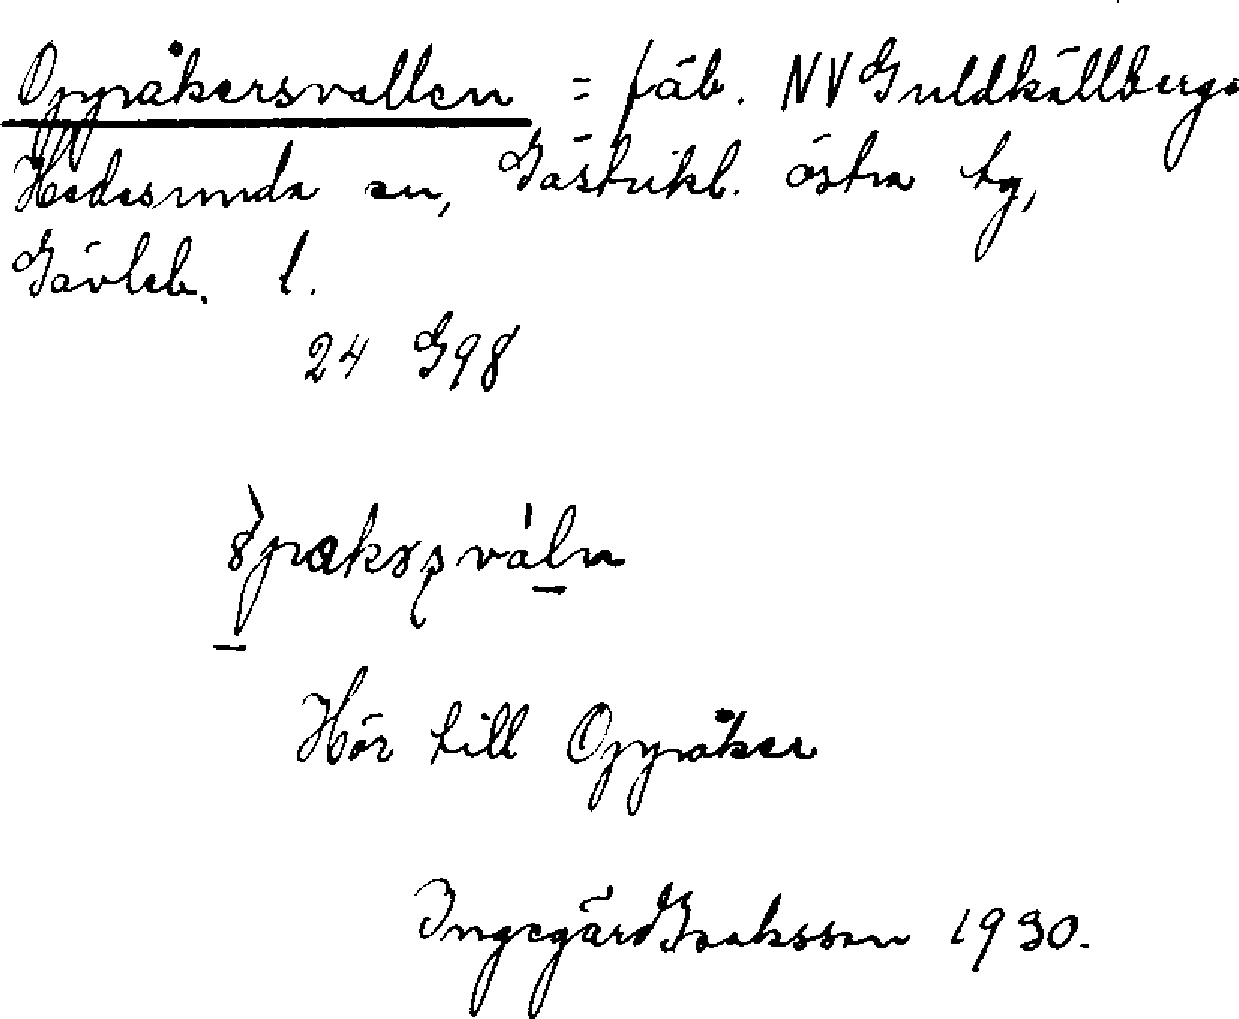 Oppåkersvallen = fäb. NV Guldkällberge
Hedesunda sn, Gästrikl. östra tg,
Gävleb. l.
24 G98
Hör till Oppåker
Ingegärd Isaksson 1930.